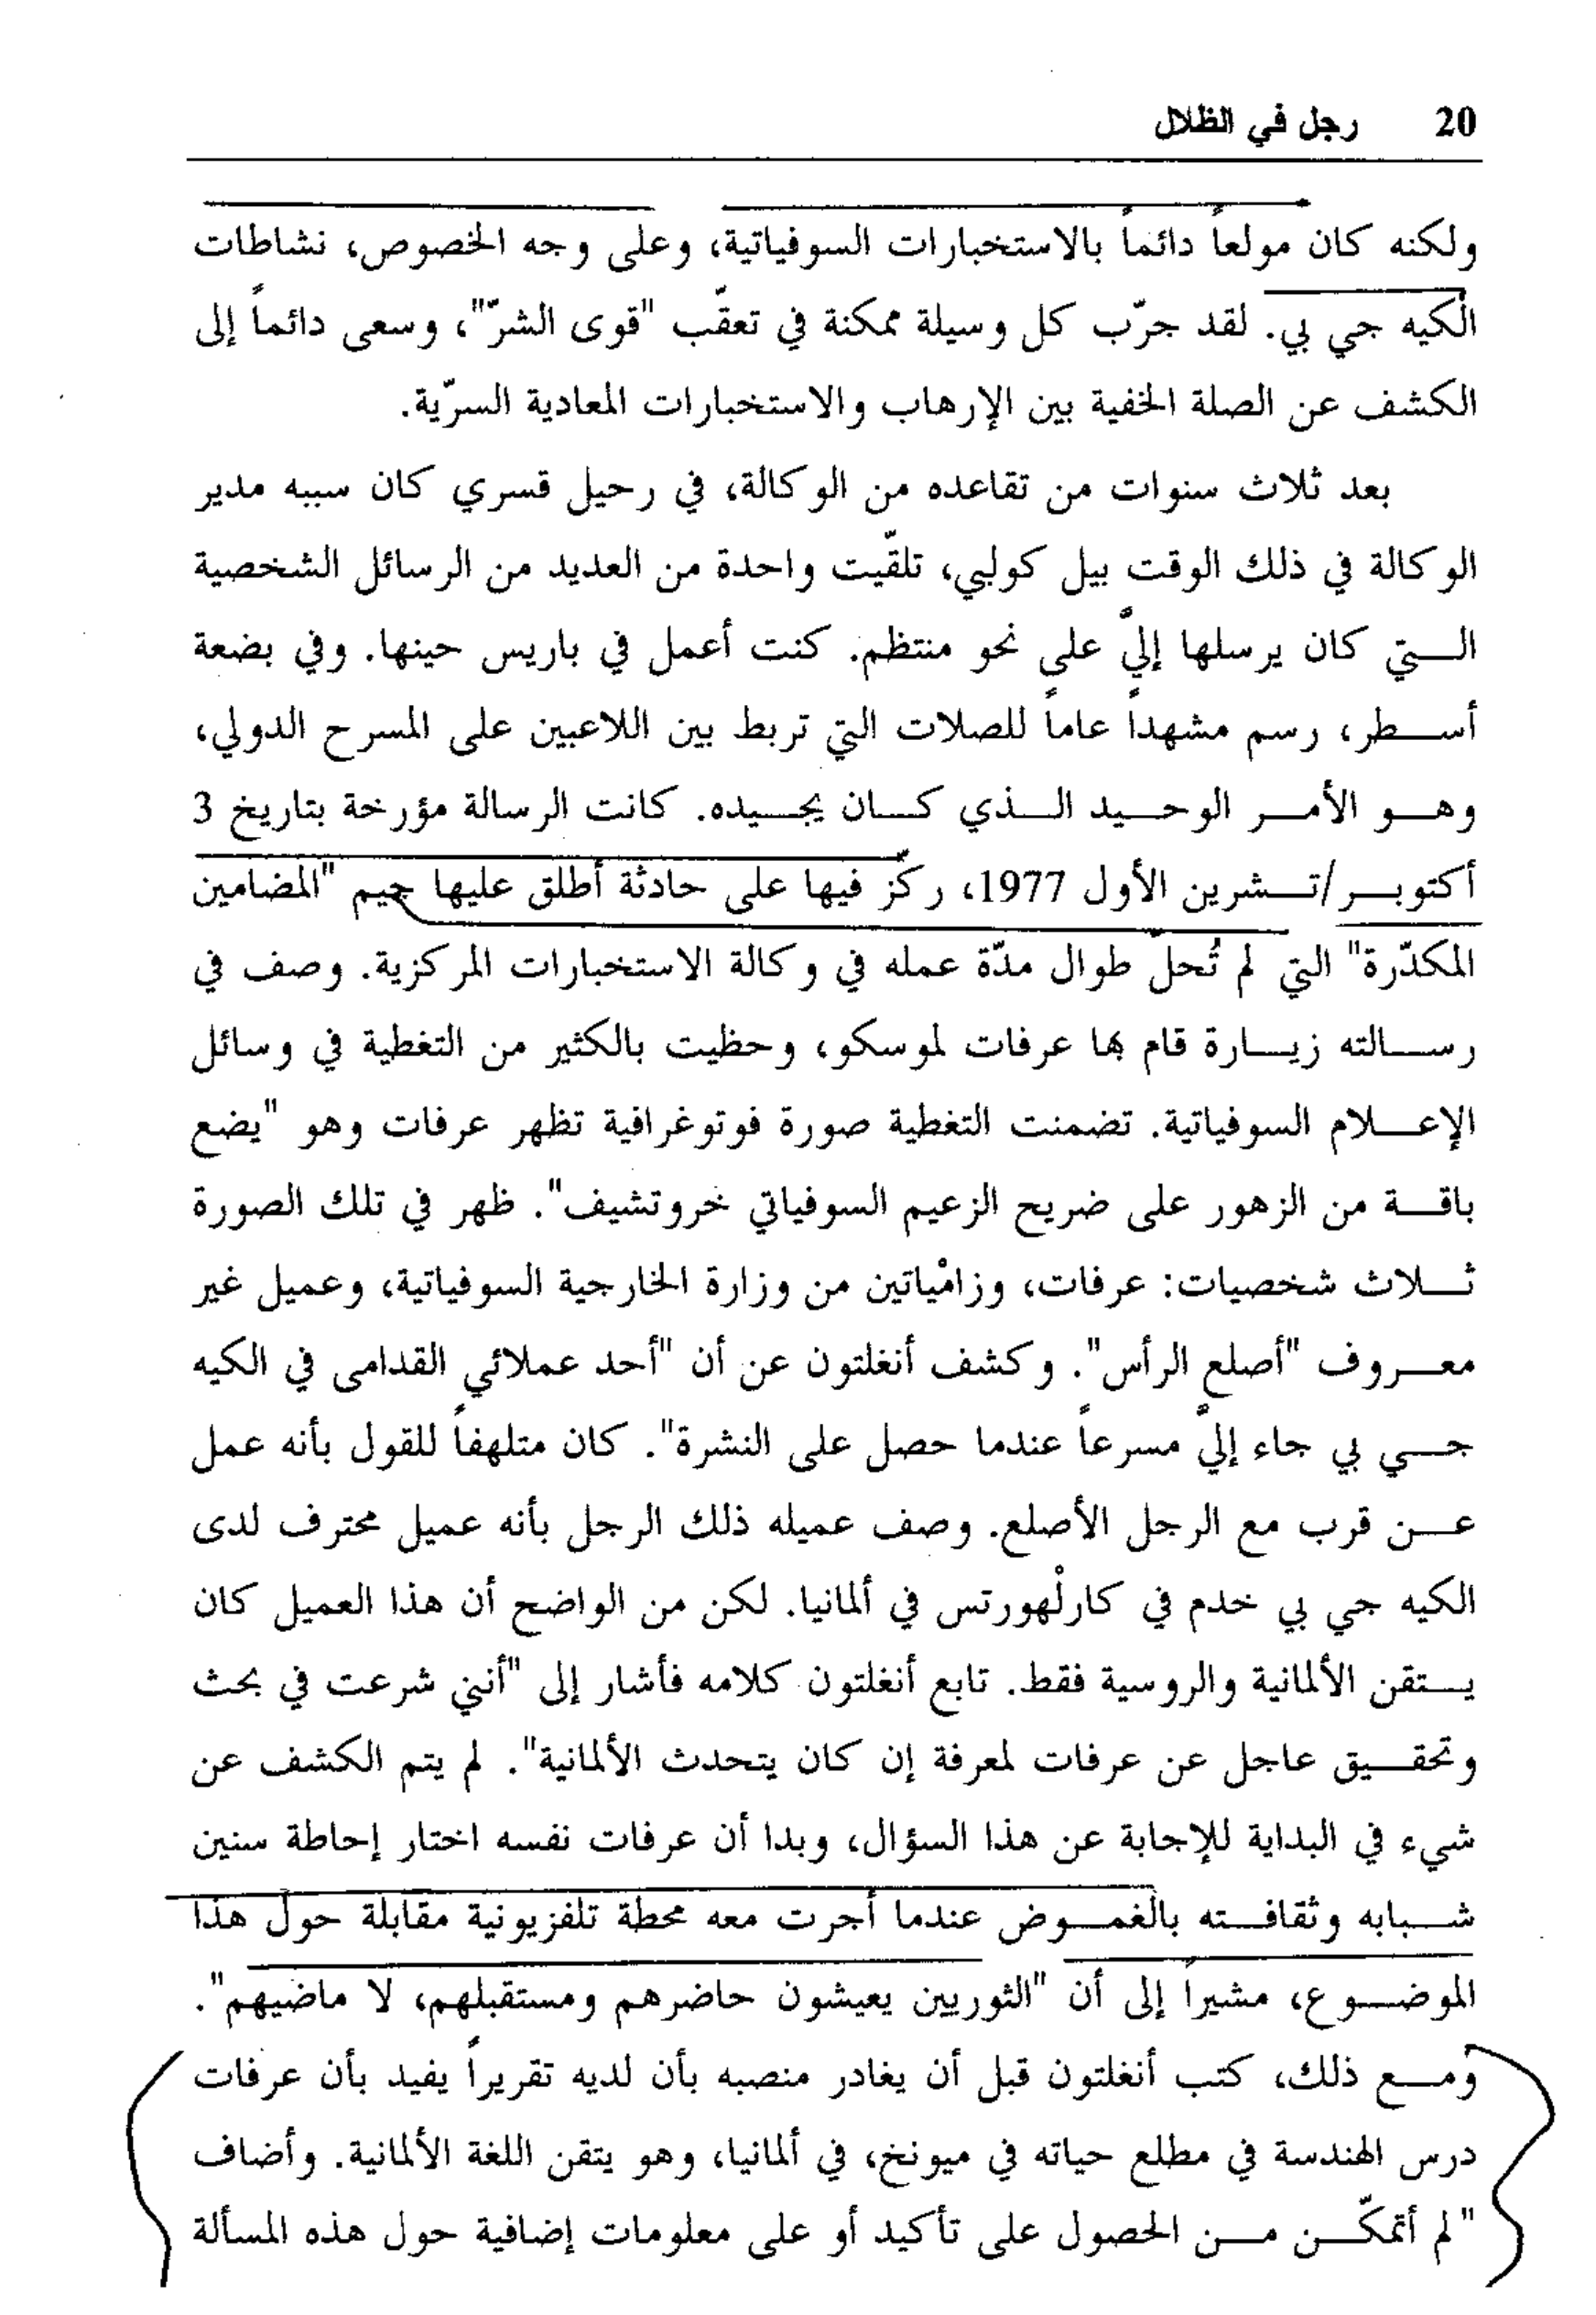 20 رجل في الظلال
ولكنه كان مولعاً دائماً بالاستخبارات السوفياتية، وعلى وجه الخصوص، نشاطات
الكيه جي بي. لقد جرّب كل وسيلة ممكنة في تعقّب "قوى الشرّ"، وسعى دائماً إلى
الكشف عن الصلة الخفية بين الإرهاب والاستخبارات المعادية السرّية.
بعد ثلاث سنوات من تقاعده من الوكالة، في رحيل قسري كان سببه مدير
الوكالة في ذلك الوقت بيل كولبي، تلقّيت واحدة من العديد من الرسائل الشخصية
الـتي كان يرسلها إليّ على نحو منتظم. كنت أعمل في باريس حينها. وفي بضعة
أسـطر، رسم مشهداً عاماً للصلات التي تربط بين اللاعبين على المسرح الدولي،
وهـو الأمـر الوحـيد الـذي كـان يجـيده. كانت الرسالة مؤرخة بتاريخ 3
أكتوبـر/تـشرين الأول 1977، ركّز فيها على حادثة أطلق عليها جيم "المضامين
المكدّرة" التي لم تُحلّ طوال مدّة عمله في وكالة الاستخبارات المركزية. وصف في
رسـالته زيـارة قام بها عرفات لموسكو، وحظيت بالكثير من التغطية في وسائل
الإعـلام السوفياتية. تضمنت التغطية صورة فوتوغرافية تظهر عرفات وهو "يضع
باقـة من الزهور على ضريح الزعيم السوفياتي خروتشيف". ظهر في تلك الصورة
ثـلاث شخصيات: عرفات، وزامْياتين من وزارة الخارجية السوفياتية، وعميل غير
معـروف "أصلع الرأس". وكشف أنغلتون عن أن "أحد عملائي القدامى في الكيه
جـي بي جاء إليّ مسرعاً عندما حصل على النشرة". كان متلهفاً للقول بأنه عمل
عـن قرب مع الرجل الأصلع. وصف عميله ذلك الرجل بأنه عميل محترف لدى
الكيه جي بي خدم في كارلْهورتس في ألمانيا. لكن من الواضح أن هذا العميل كان
يـتقن الألمانية والروسية فقط. تابع أنغلتون كلامه فأشار إلى "أنني شرعت في بحث
وتحقـيق عاجل عن عرفات لمعرفة إن كان يتحدث الألمانية". لم يتم الكشف عن
شيء في البداية للإجابة عن هذا السؤال، وبدا أن عرفات نفسه اختار إحاطة سنين
شـبابه وثقافـته بالغمـوض عندما أجرت معه محطة تلفزيونية مقابلة حول هذا
الموضـوع، مشيراً إلى أن "الثوريين يعيشون حاضرهم ومستقبلهم، لا ماضيهم".
ومـع ذلك، كتب أنغلتون قبل أن يغادر منصبه بأن لديه تقريراً يفيد بأن عرفات
درس الهندسة في مطلع حياته في ميونخ، في ألمانيا، وهو يتقن اللغة الألمانية. وأضاف
"لم أتمكّـن مـن الحصول على تأكيد أو على معلومات إضافية حول هذه المسألة